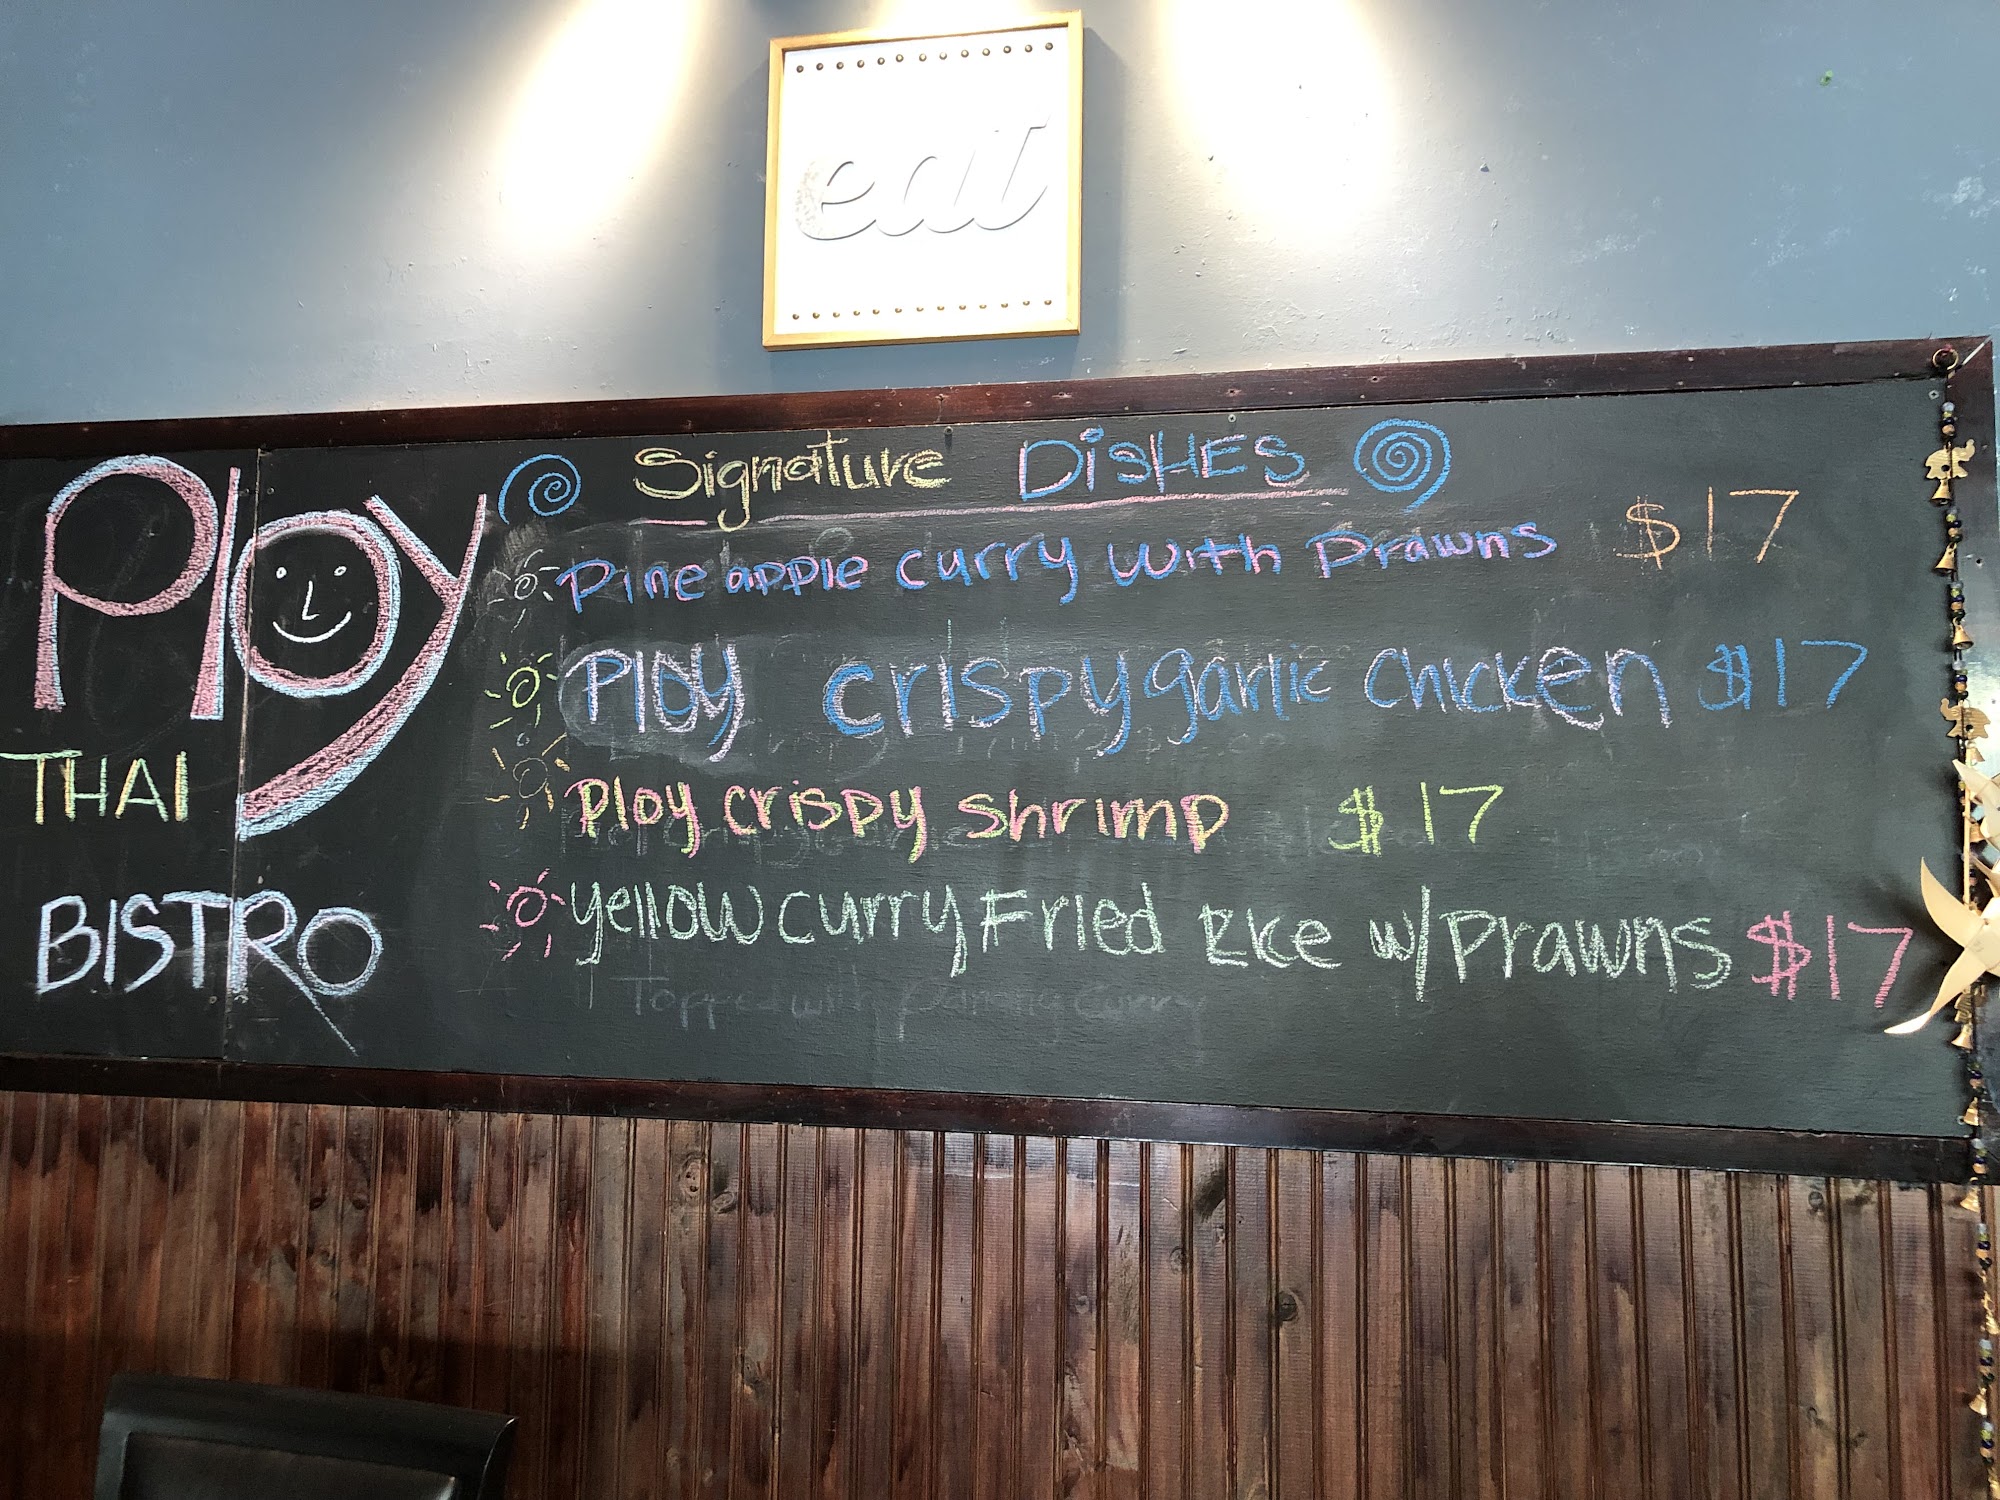 eat
Ploy
THAI
BISTRO
Signature DiSHES
Pineapple curry with Prawns $17
Ploy crispy garlic chicken $17
Ploy crispy shrimp $17
Yellow curry Fried Rice w/ Prawns $17
Topped with panang curry